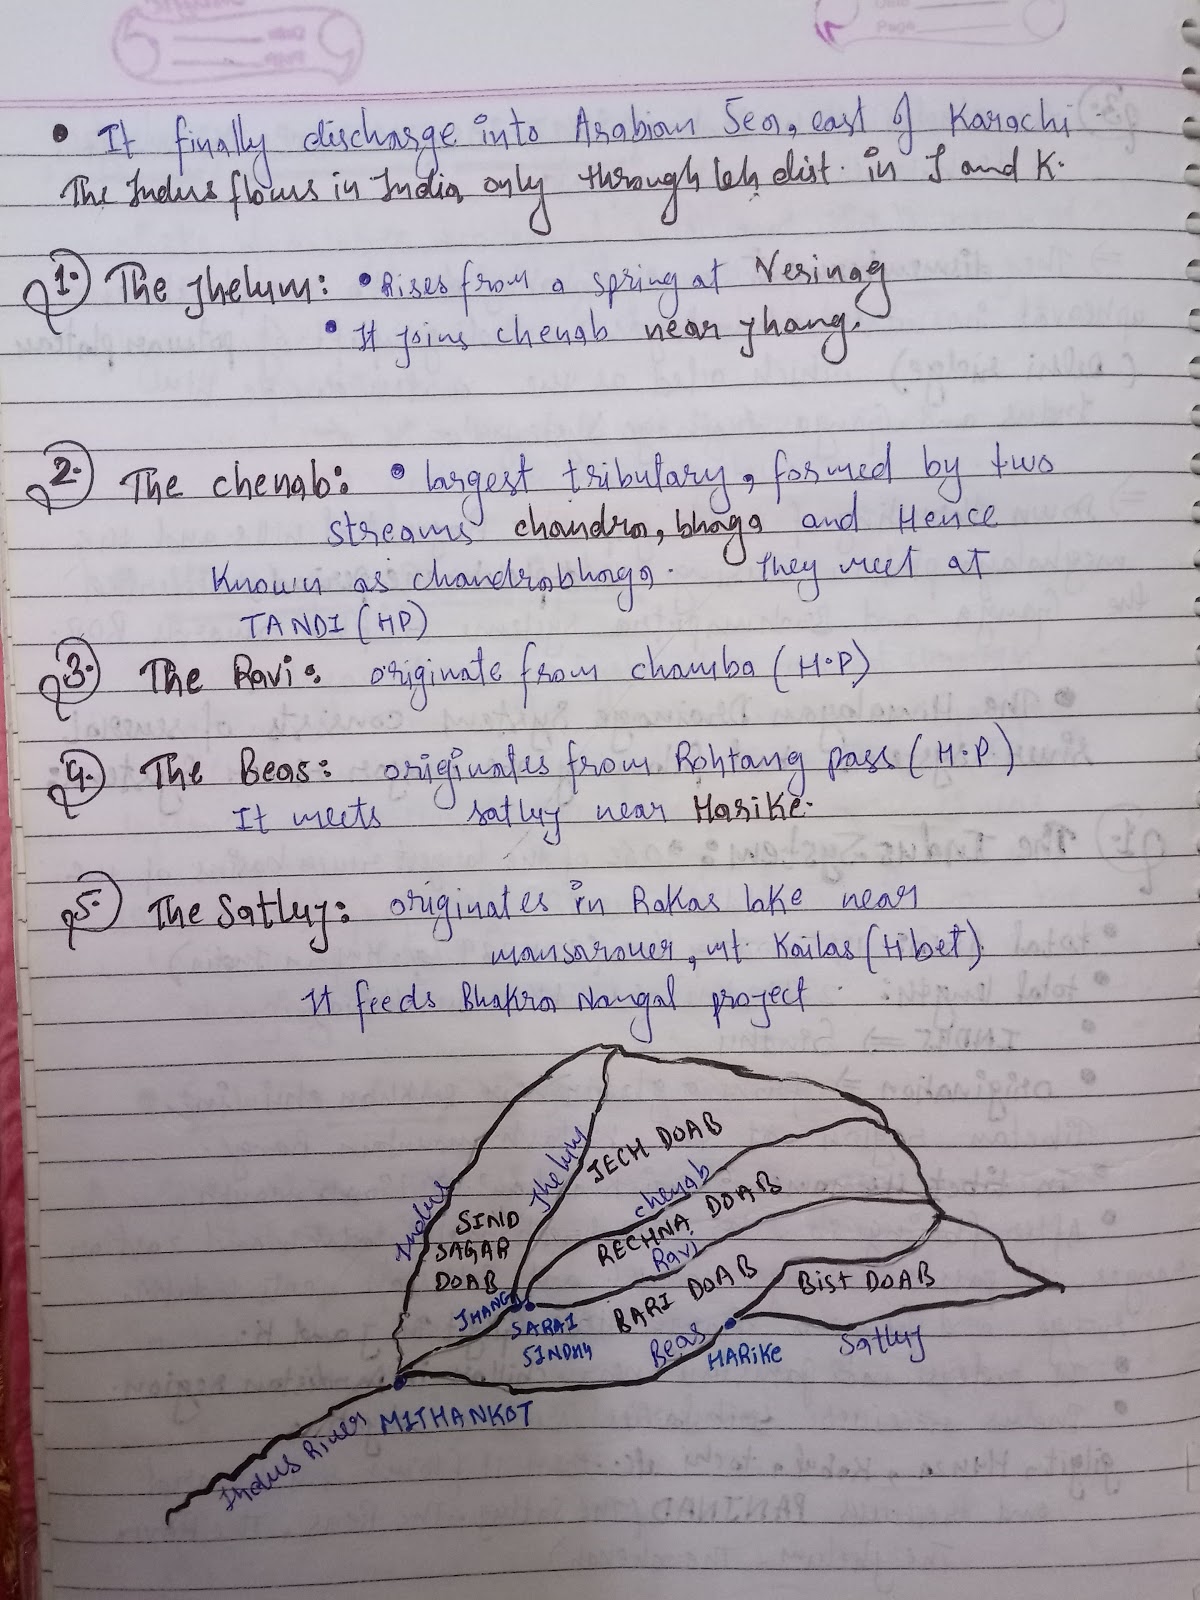 • It finally discharge into Arabian Sea, east of Karachi
The Indus flows in India only through leh dist. in J and K.
Q1. The Jhelum: • Rises from a spring at Verinag
• It joins chenab near Jhang.
Q2. The chenab: • largest tributary, formed by two
streams chandra, bhaga and Hence
Known as chandrabhaga. They meet at
TANDI (HP)
Q3. The Ravi: originate from chamba (H.P)
Q4. The Beas: originates from Rohtang pass (H.P.)
It meets satluj near Harike.
Q5. The Satluj: originates in Rakas lake near
mansarover, mt. Kailas (tibet).
It feeds Bhakra Nangal project.
Indus
SIND
SAGAR
DOAB
Jhelum
JECH DOAB
chenab
RECHNA DOAB
Ravi
BARI DOAB
Bist DOAB
JHANG
SARAI
SINDHU
Beas
HARIKE
Satluj
MITHANKOT
Indus River